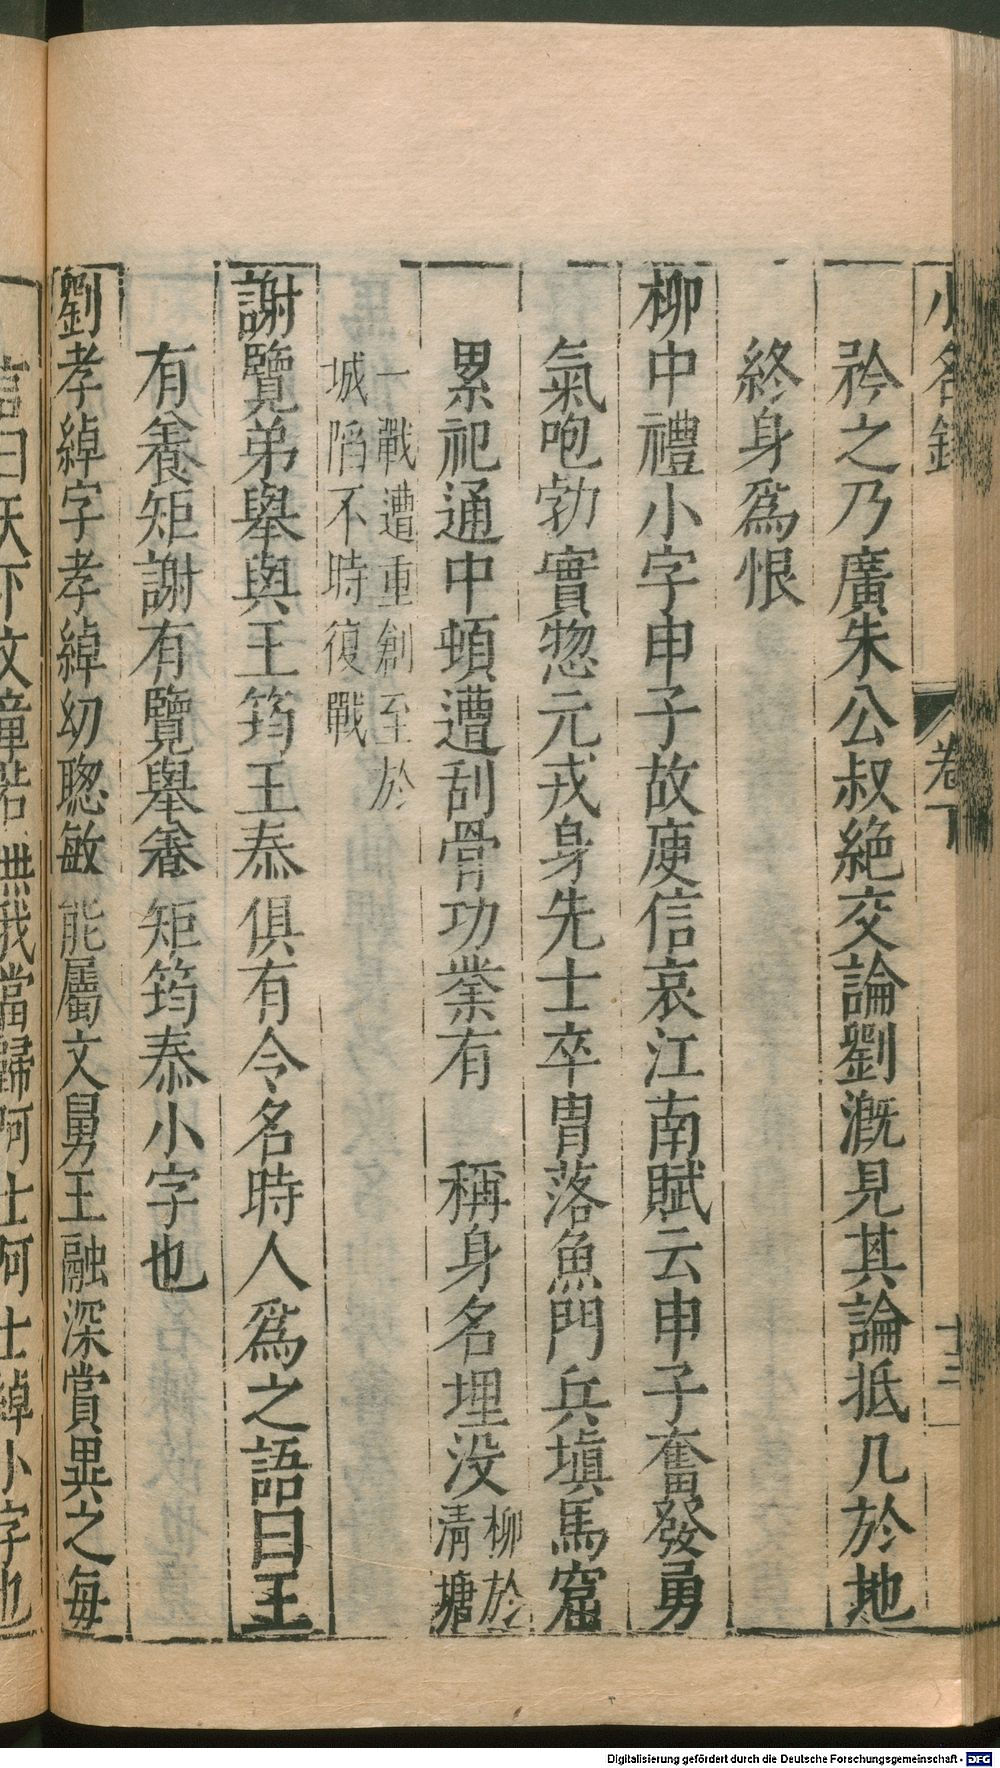 小名錄
卷下
十三
矜之乃廣朱公叔絶交論劉漑見其論抵几於地
終身爲恨
柳中禮小字申子故庾信哀江南賦云申子奮發勇
氣咆勃實惣元戎身先士卒胄落魚門兵塡馬窟
累祀通中頓遭刮骨功業有 稱身名埋没柳於
清塘
一戰遭重創至於
城陷不時復戰
謝覽弟舉與王筠王泰俱有令名時人爲之語曰王
有養矩謝有覽舉養矩筠泰小字也
劉孝綽字孝綽幼聰敏能屬文舅王融深賞異之每
言曰天下文章若無我當歸阿士阿士綽小字也
Digitalisierung gefördert durch die Deutsche Forschungsgemeinschaft - DFG